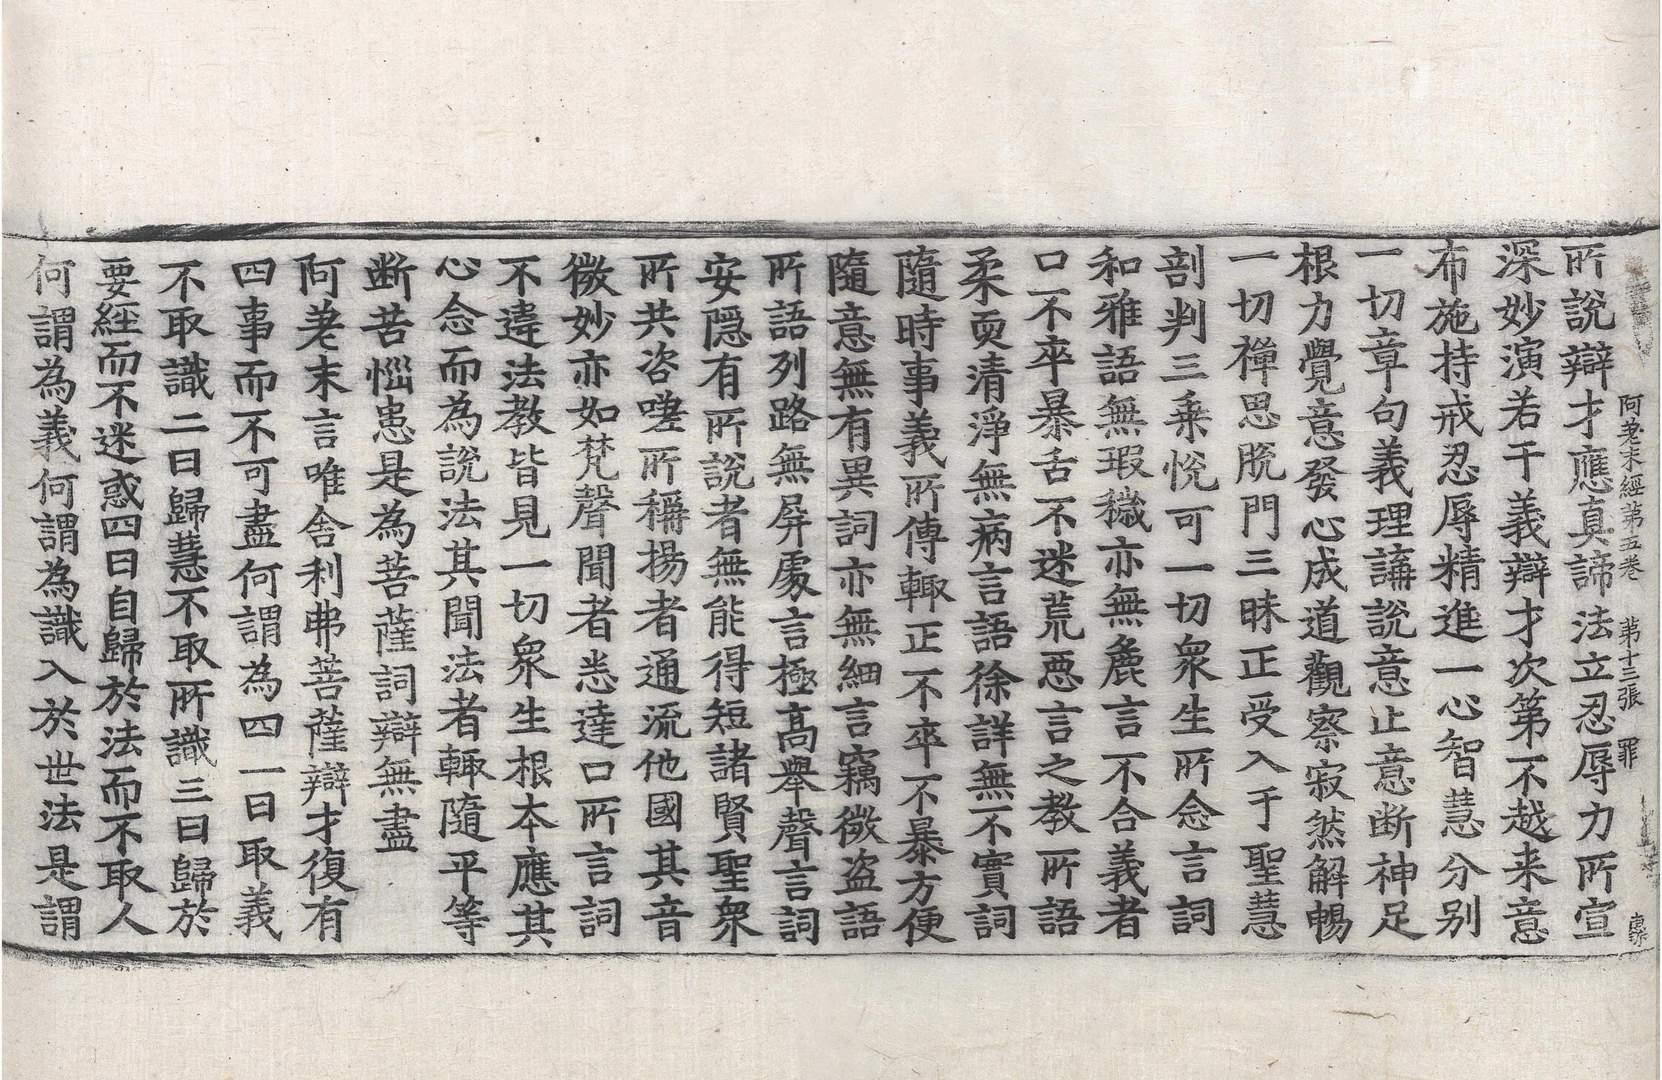 阿差末經第五卷 第十三張 罪
所說辯才應真諦法立忍辱力所宣
深妙演若干義辯才次第不越来意
布施持戒忍辱精進一心智慧分別
一切章句義理講說意止意断神足
根力覺意發心成道觀察寂然解暢
一切禪思脫門三昧正受入于聖慧
剖判三乘悅可一切衆生所念言詞
和雅語無瑕穢亦無麁言不合義者
口不卒暴舌不迷荒惡言之教所語
柔耎清淨無病言語徐詳無不實詞
隨時事義所傳輙正不卒不暴方便
隨意無有異詞亦無細言竊微盗語
所語列路無屏處言極高舉聲言詞
安隱有所說者無能得短諸賢聖衆
所共咨嗟所稱揚者通流他國其音
微妙亦如梵聲聞者悉達口所言詞
不違法教皆見一切衆生根本應其
心念而為說法其聞法者輙隨平等
断苦惱患是為菩薩詞辯無盡
阿差末言唯舍利弗菩薩辯才復有
四事而不可盡何謂為四一曰取義
不取識二曰歸慧不取所識三曰歸於
要經而不迷惑四曰自歸於法而不取人
何謂為義何謂為識入於世法是謂